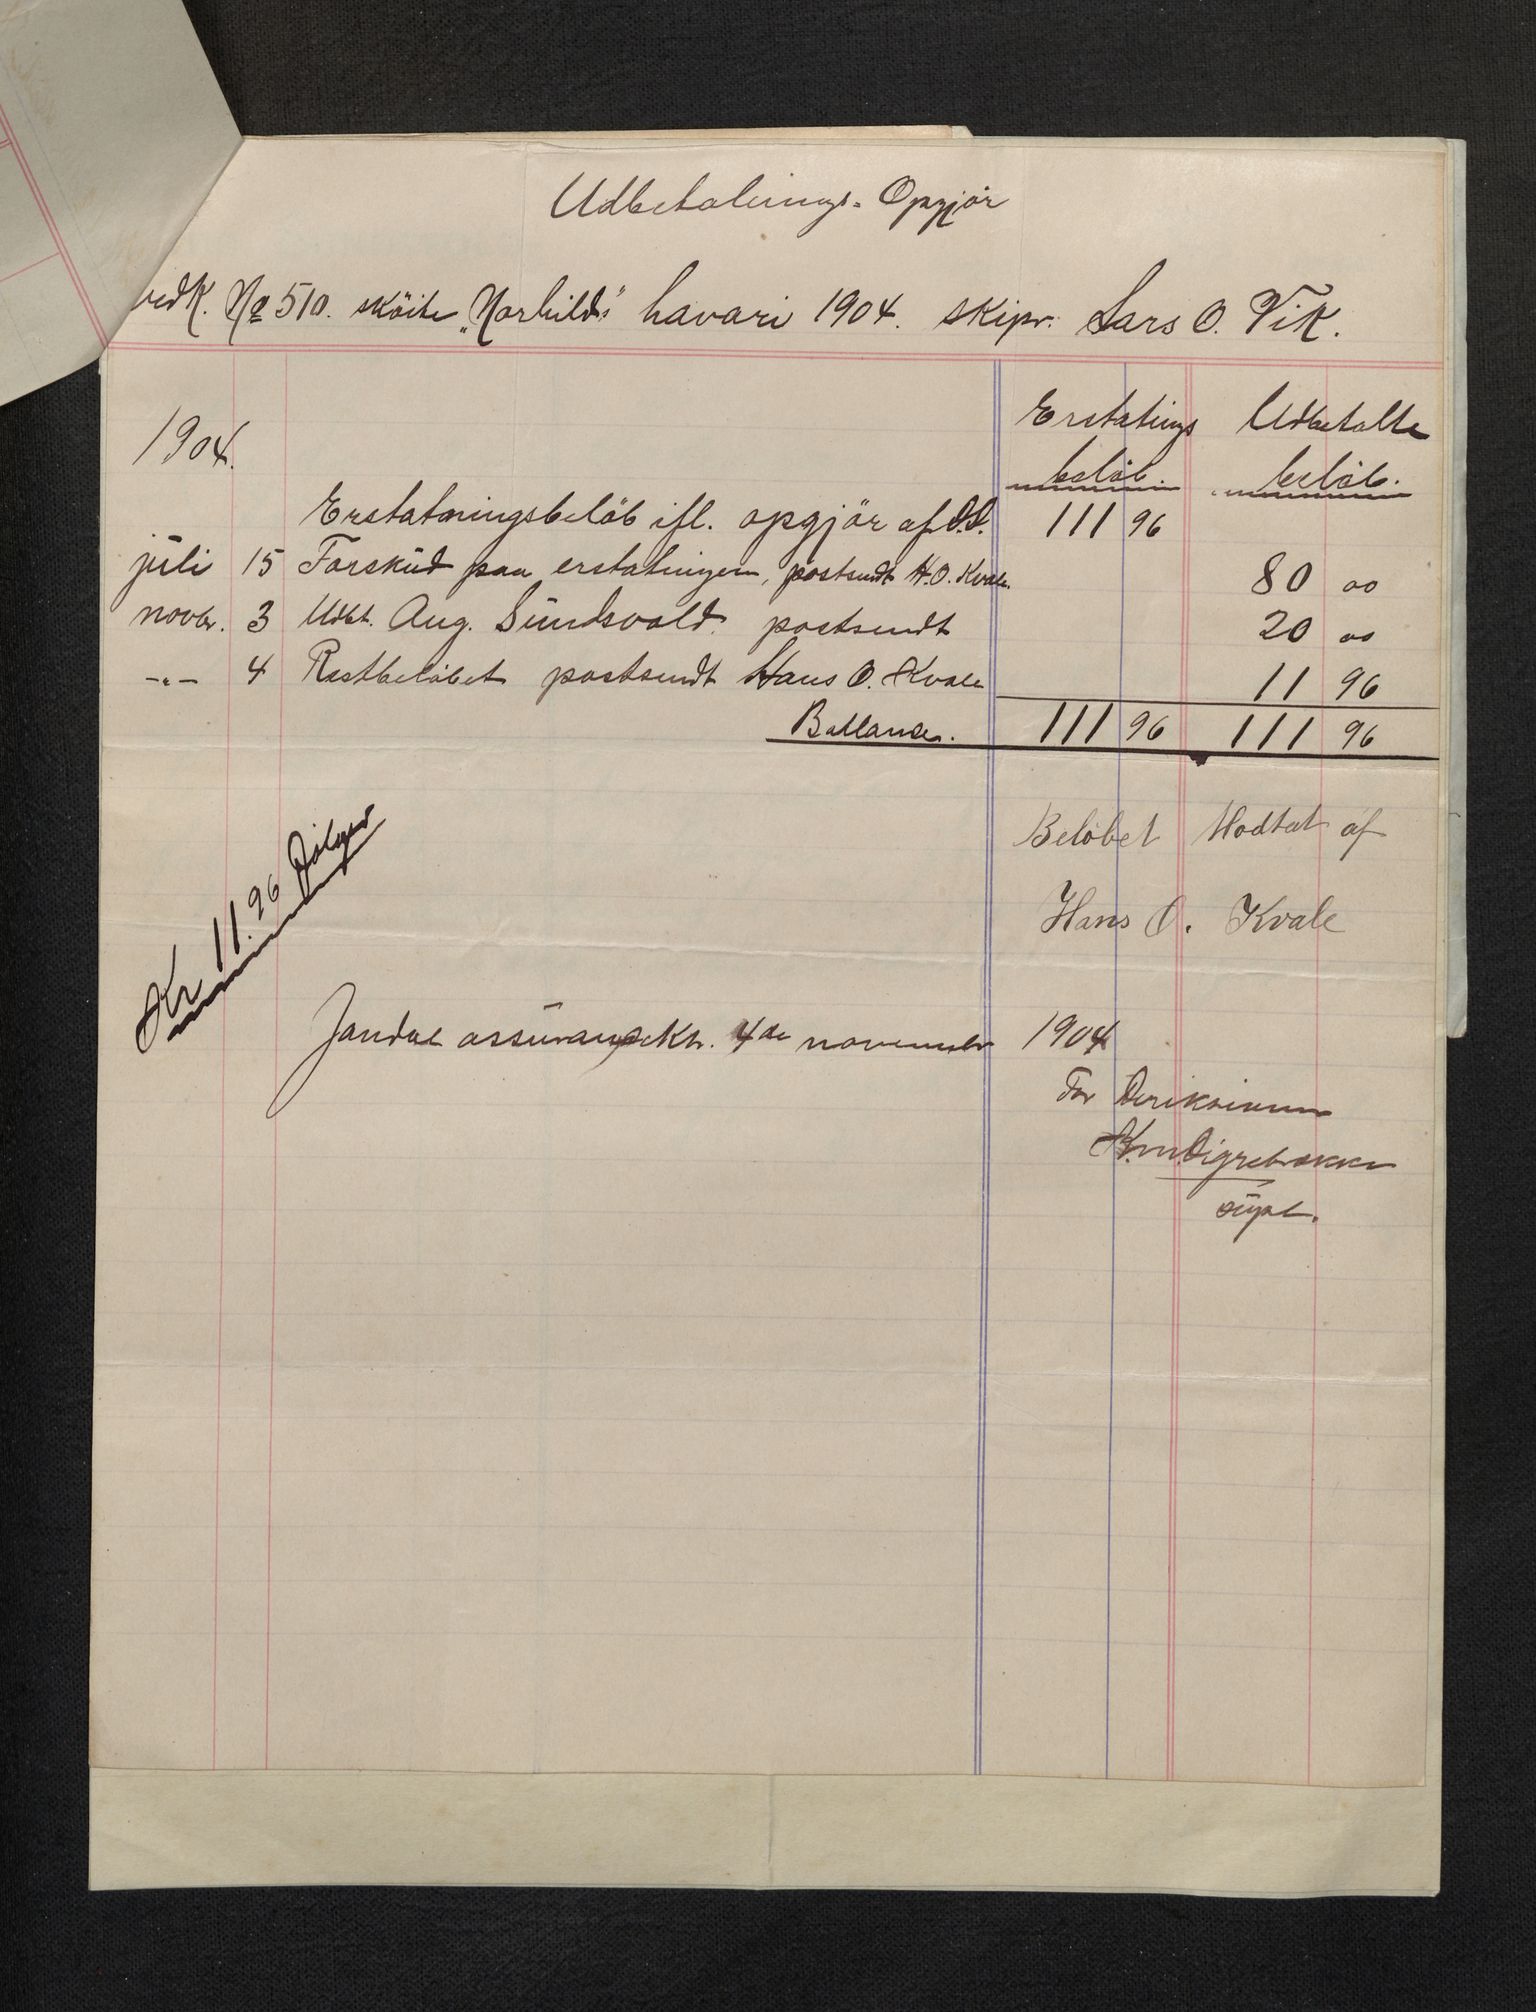 Udbetalings-Opgjör
vedk. No 510. sköite „Norhild's" havari 1904. skipr. Lars O. Vik.
1904.
Erstatnings beløb. Udbetalte beløb.
Erstatningsbeløb ifl. opgjör af D.D. 111 96
juli 15 Forskud paa erstatningen, postsendt H.O. Kvale. 80 00
novbr. 3 Udbt. Aug. Sundsvold. postsendt 20 00
-"- 4 Restbeløbet postsendt Hans O. Kvale 11 96
Ballance. 111 96 111 96
Beløbet Modtat af
Hans O. Kvale
Kr 11.96 Følger
Jondal assurancektr. 4de november 1904
For Direksionen
Digrebrække